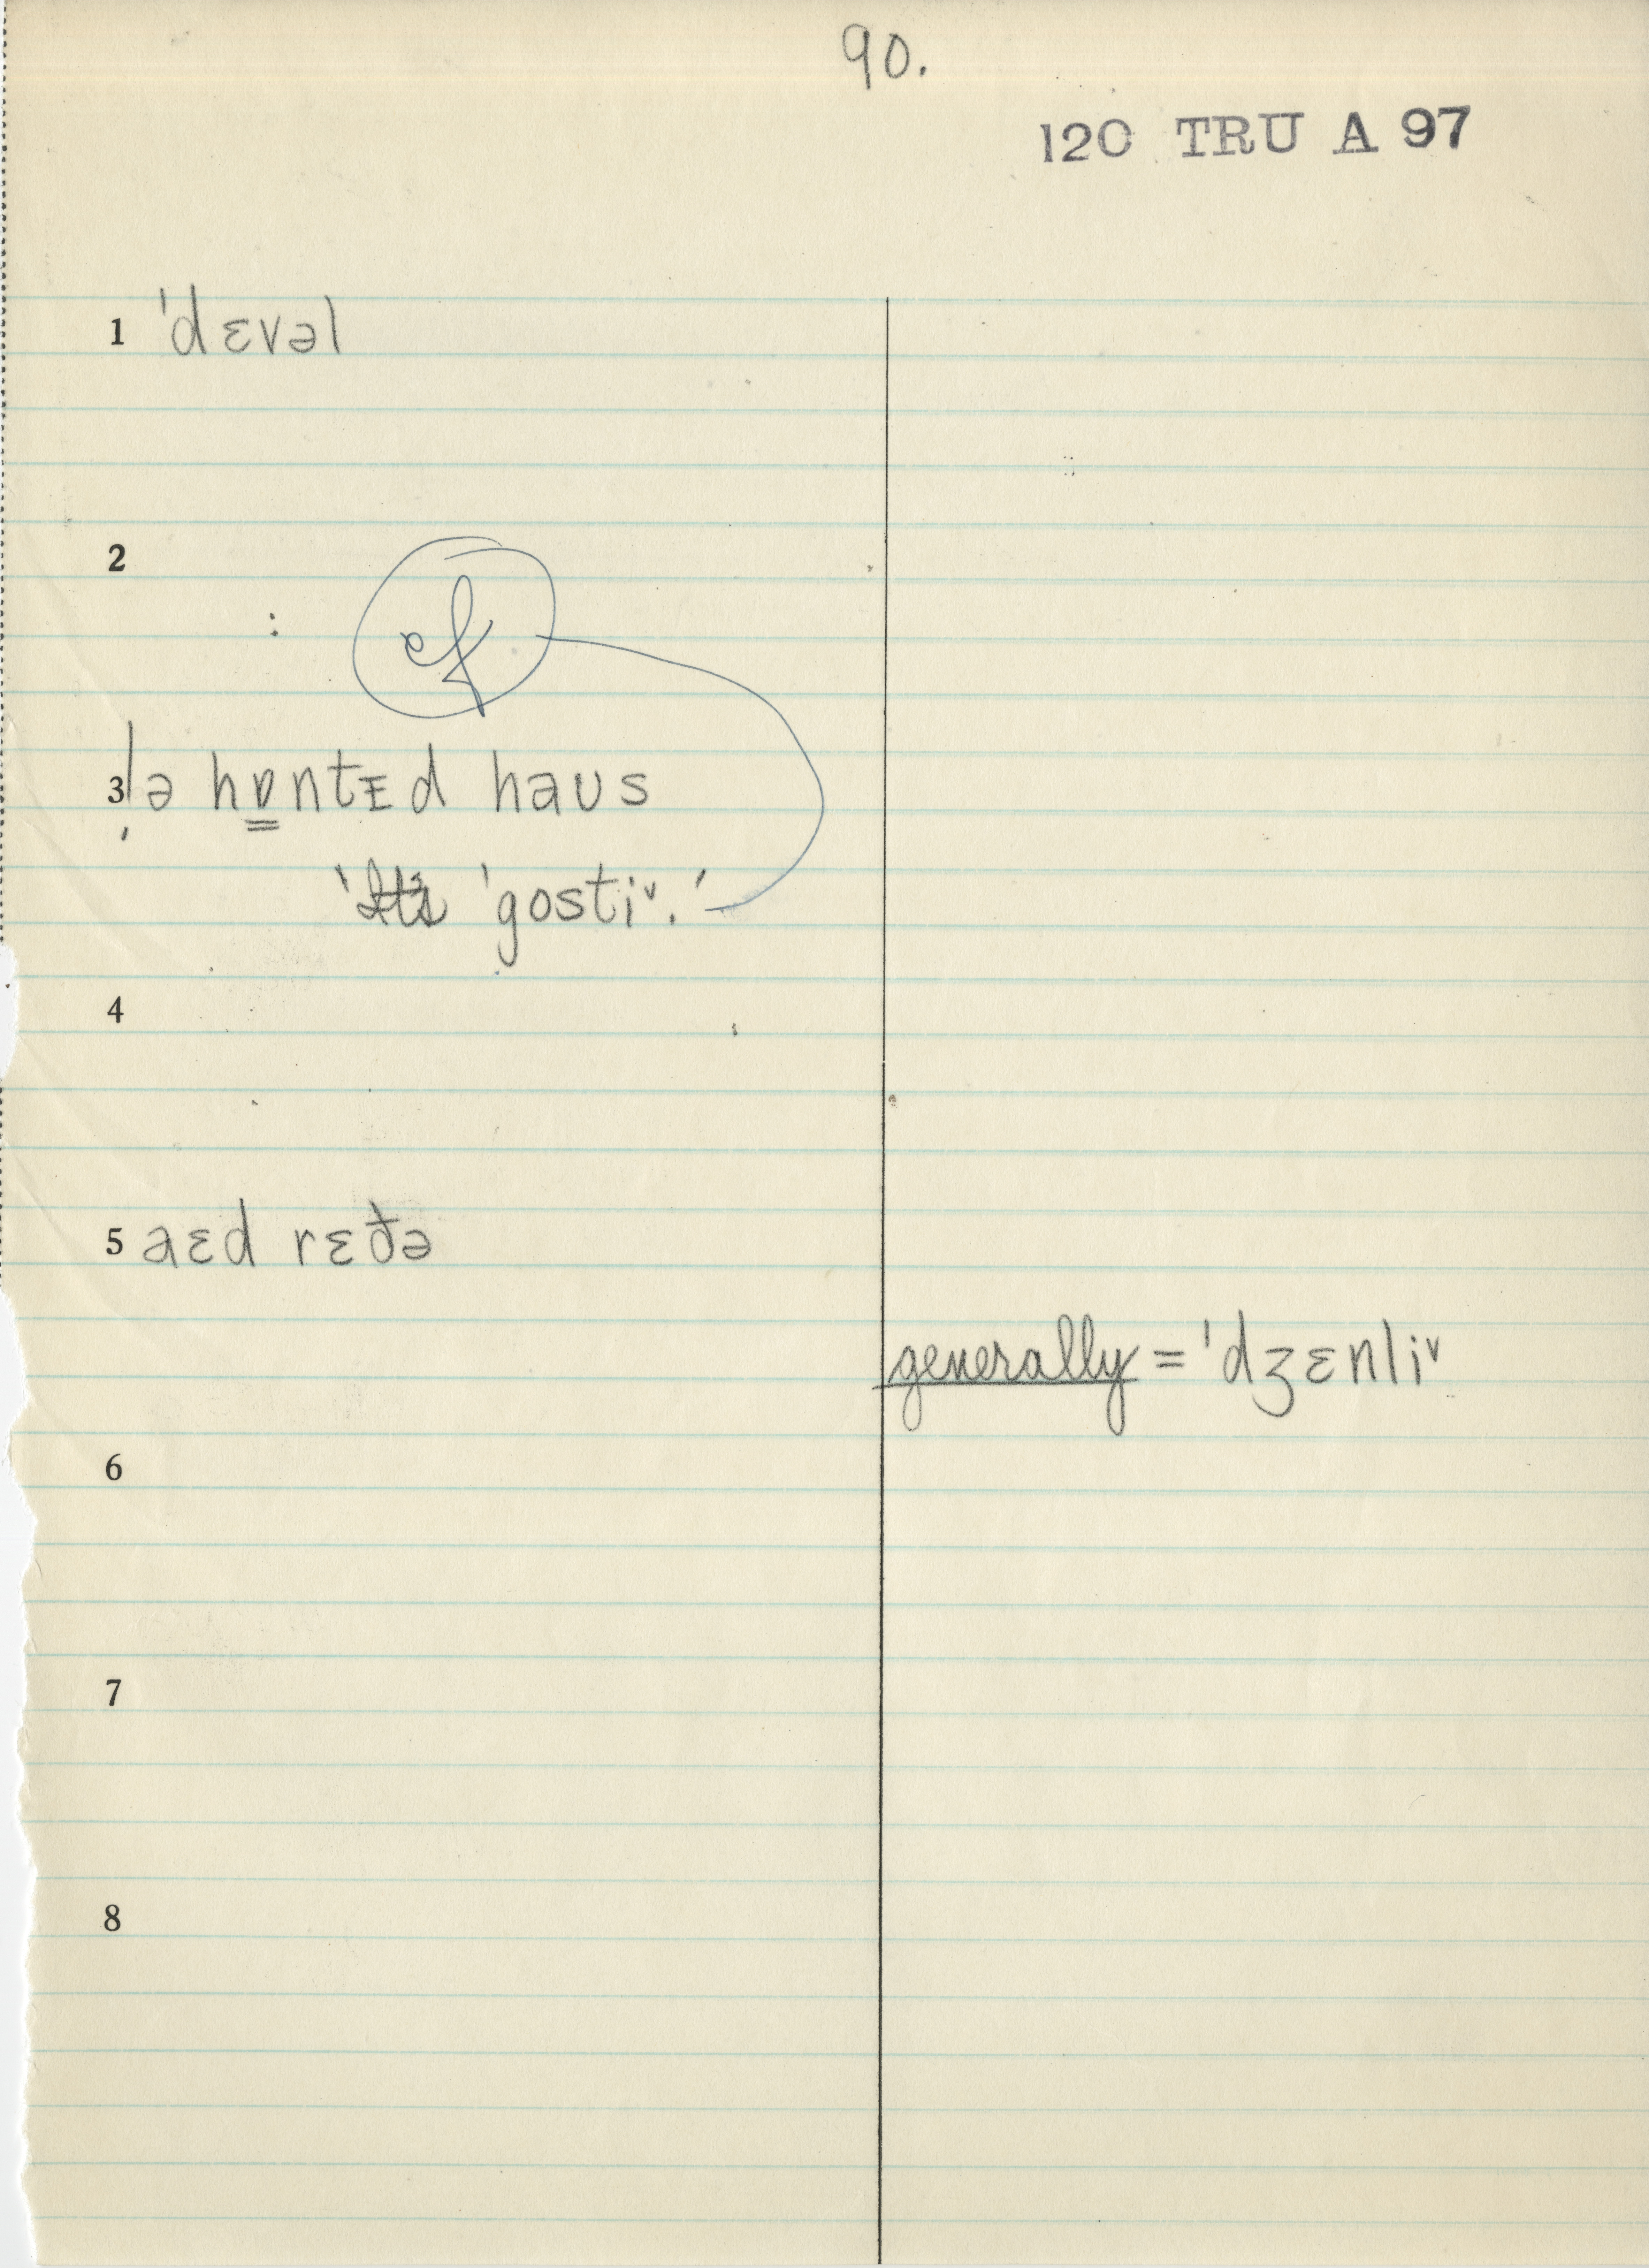 90.
120 TRU A 97
1 ˈdɛvəl
2
cf
3 |ə hɒ̳ntᴇd haus
'It's ˈgosti˅.'
4
5 aɛd rɛðə
generally = ˈdʒɛnli˅
6
7
8